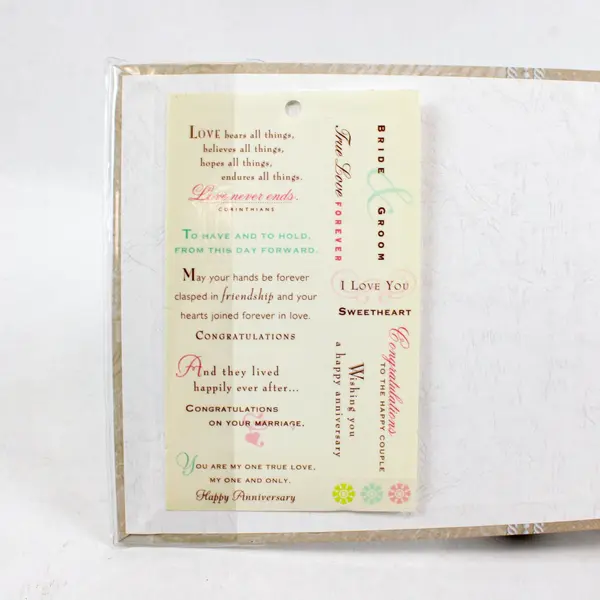 LOVE bears all things,
believes all things,
hopes all things,
endures all things.
Love never ends.
CORINTHIANS
TO HAVE AND TO HOLD,
FROM THIS DAY FORWARD.
May your hands be forever
clasped in friendship and your
hearts joined forever in love.
CONGRATULATIONS
And they lived
happily ever after...
CONGRATULATIONS
ON YOUR MARRIAGE.
YOU ARE MY ONE TRUE LOVE,
MY ONE AND ONLY.
Happy Anniversary
True Love FOREVER
BRIDE & GROOM
I LOVE YOU
SWEETHEART
Wishing you
a happy anniversary
Congratulations
TO THE HAPPY COUPLE